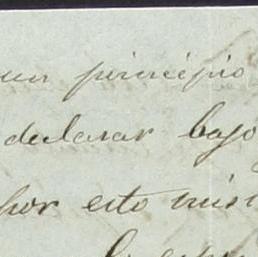 un principio
declarar bajo
por esto mis